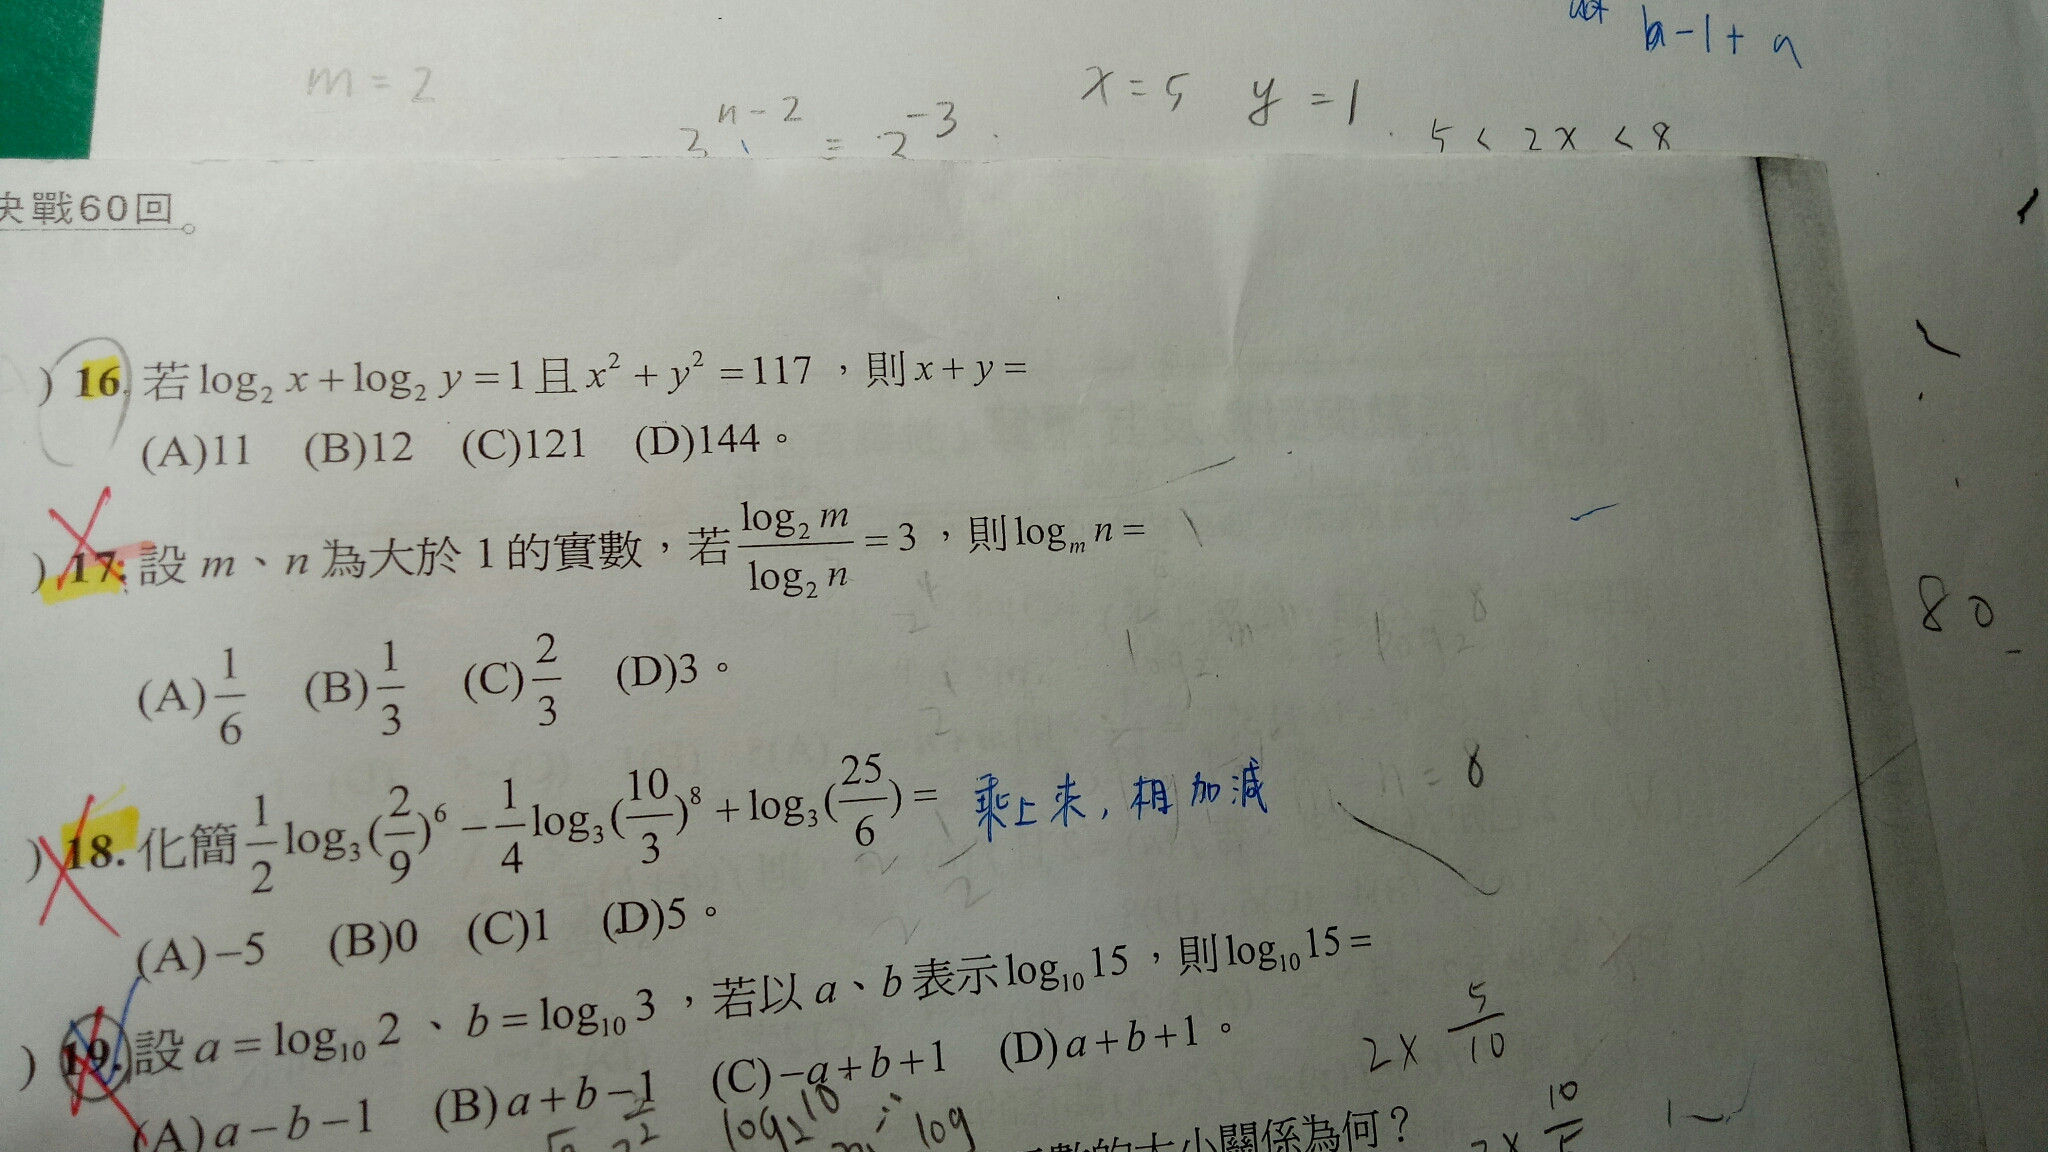 b-1+a
m=2
x=5 y=1
2^{n-2} = 2^{-3}
5<2x<8
決戰60回。
) 16. 若 log₂ x + log₂ y = 1 且 x² + y² = 117 ,則 x + y =
(A)11 (B)12 (C)121 (D)144。
) 17. 設 m、n 為大於 1 的實數,若 \frac{log₂ m}{log₂ n} = 3 ,則 logₘ n =
(A)\frac{1}{6} (B)\frac{1}{3} (C)\frac{2}{3} (D)3。
80
n=8
) 18. 化簡 \frac{1}{2} log₃(\frac{2}{9})⁶ − \frac{1}{4} log₃(\frac{10}{3})⁸ + log₃(\frac{25}{6}) = 乘上來,相加減
(A)−5 (B)0 (C)1 (D)5。
) 19. 設 a = log₁₀ 2、b = log₁₀ 3 ,若以 a、b 表示 log₁₀ 15 ,則 log₁₀ 15 =
(A) a − b − 1 (B) a + b − 1 (C) −a + b + 1 (D) a + b + 1。
2 × \frac{5}{10}
log₂ 10
log
數的大小關係為何?